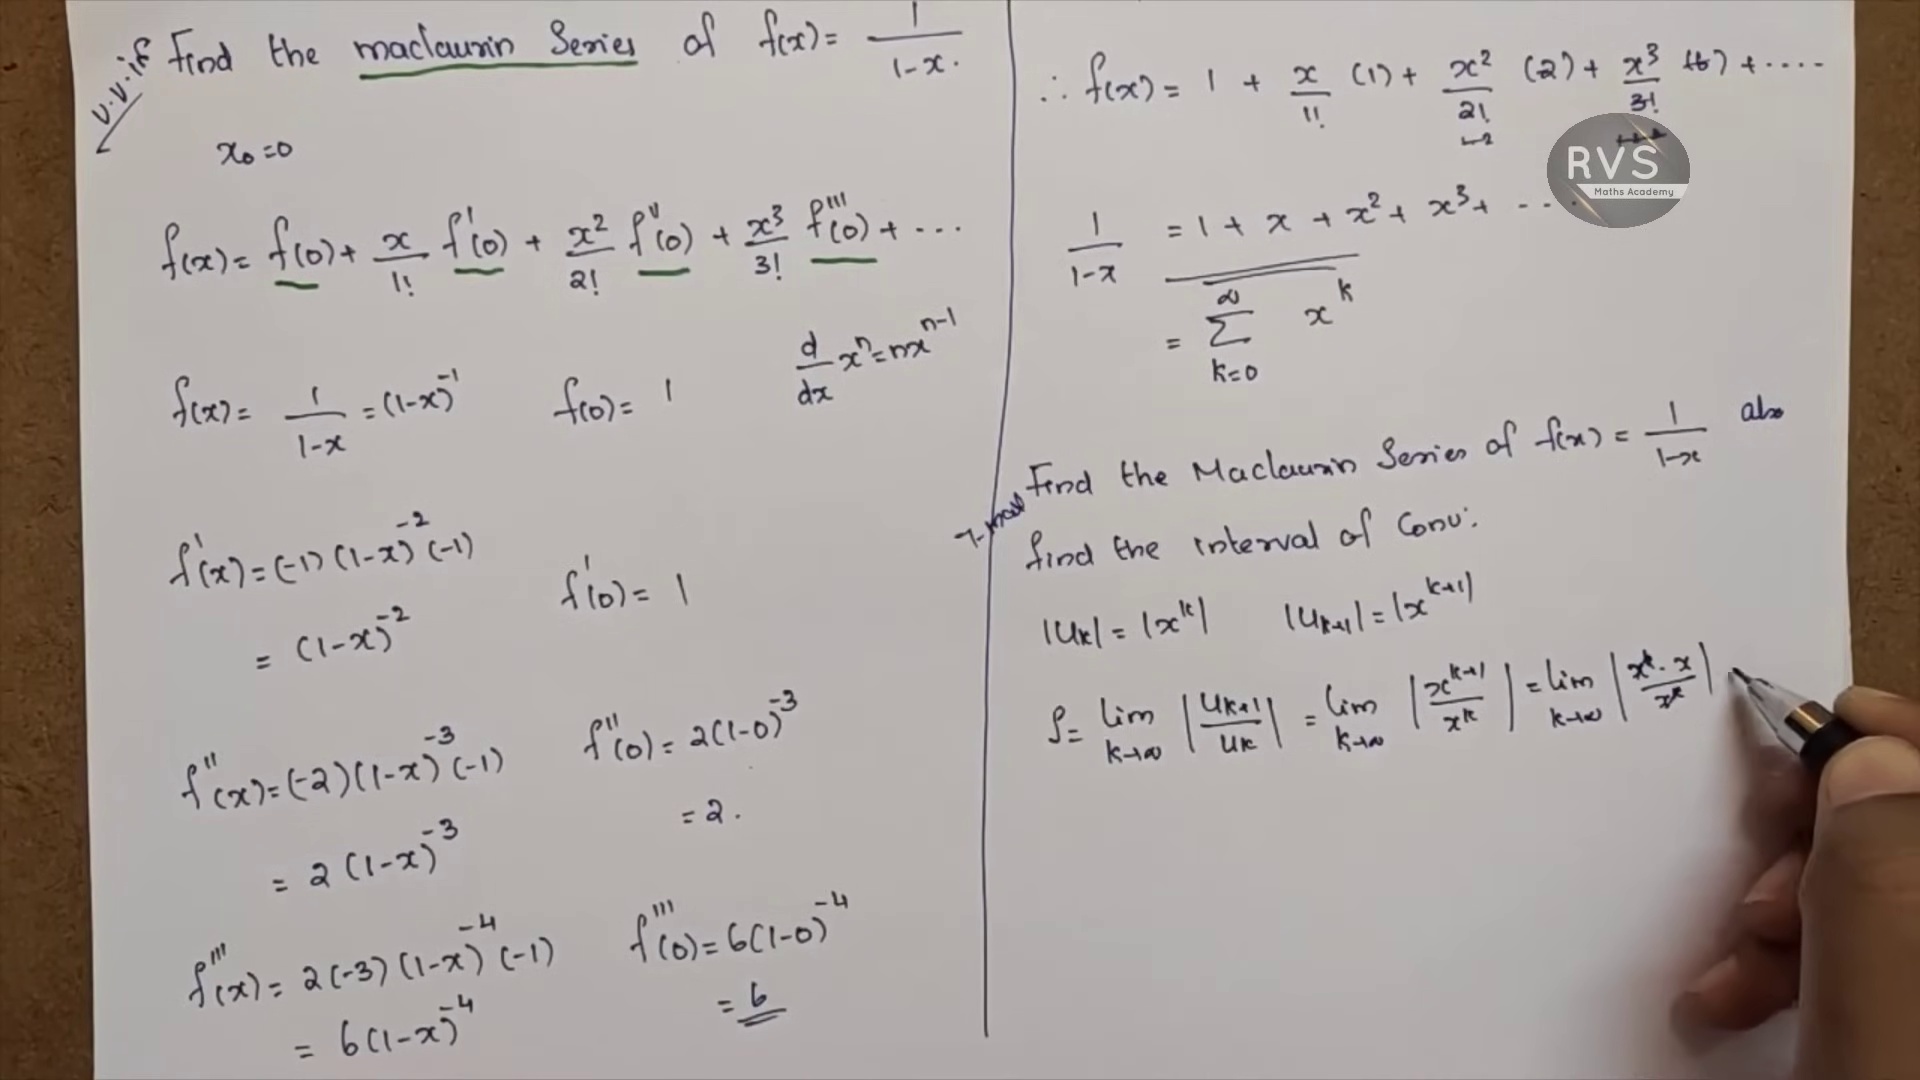 v.v.if
Find the maclaurin Series of f(x) = 1/(1-x).
x₀=0
f(x) = f(0) + x/1! f'(0) + x²/2! f''(0) + x³/3! f'''(0) + ...
d/dx xⁿ = nxⁿ⁻¹
f(x) = 1/(1-x) = (1-x)⁻¹ f(0) = 1
f'(x) = (-1)(1-x)⁻²(-1) f'(0) = 1
= (1-x)⁻²
f''(x) = (-2)(1-x)⁻³(-1) f''(0) = 2(1-0)⁻³
= 2(1-x)⁻³ = 2.
f'''(x) = 2(-3)(1-x)⁻⁴(-1) f'''(0) = 6(1-0)⁻⁴
= 6(1-x)⁻⁴ = 6
∴ f(x) = 1 + x/1! (1) + x²/2! (2) + x³/3! (6) + ....
RVS
Maths Academy
1/(1-x) = 1 + x + x² + x³ + ...
= ∞ Σ k=0 xᵏ
Find the Maclaurin Series of f(x) = 1/(1-x) also
find the interval of Conv:
|uₖ| = |xᵏ| |uₖ₊₁| = |xᵏ⁺¹|
ρ = lim k→∞ |uₖ₊₁/uₖ| = lim k→∞ |xᵏ⁺¹/xᵏ| = lim k→∞ |xᵏ·x/xᵏ|